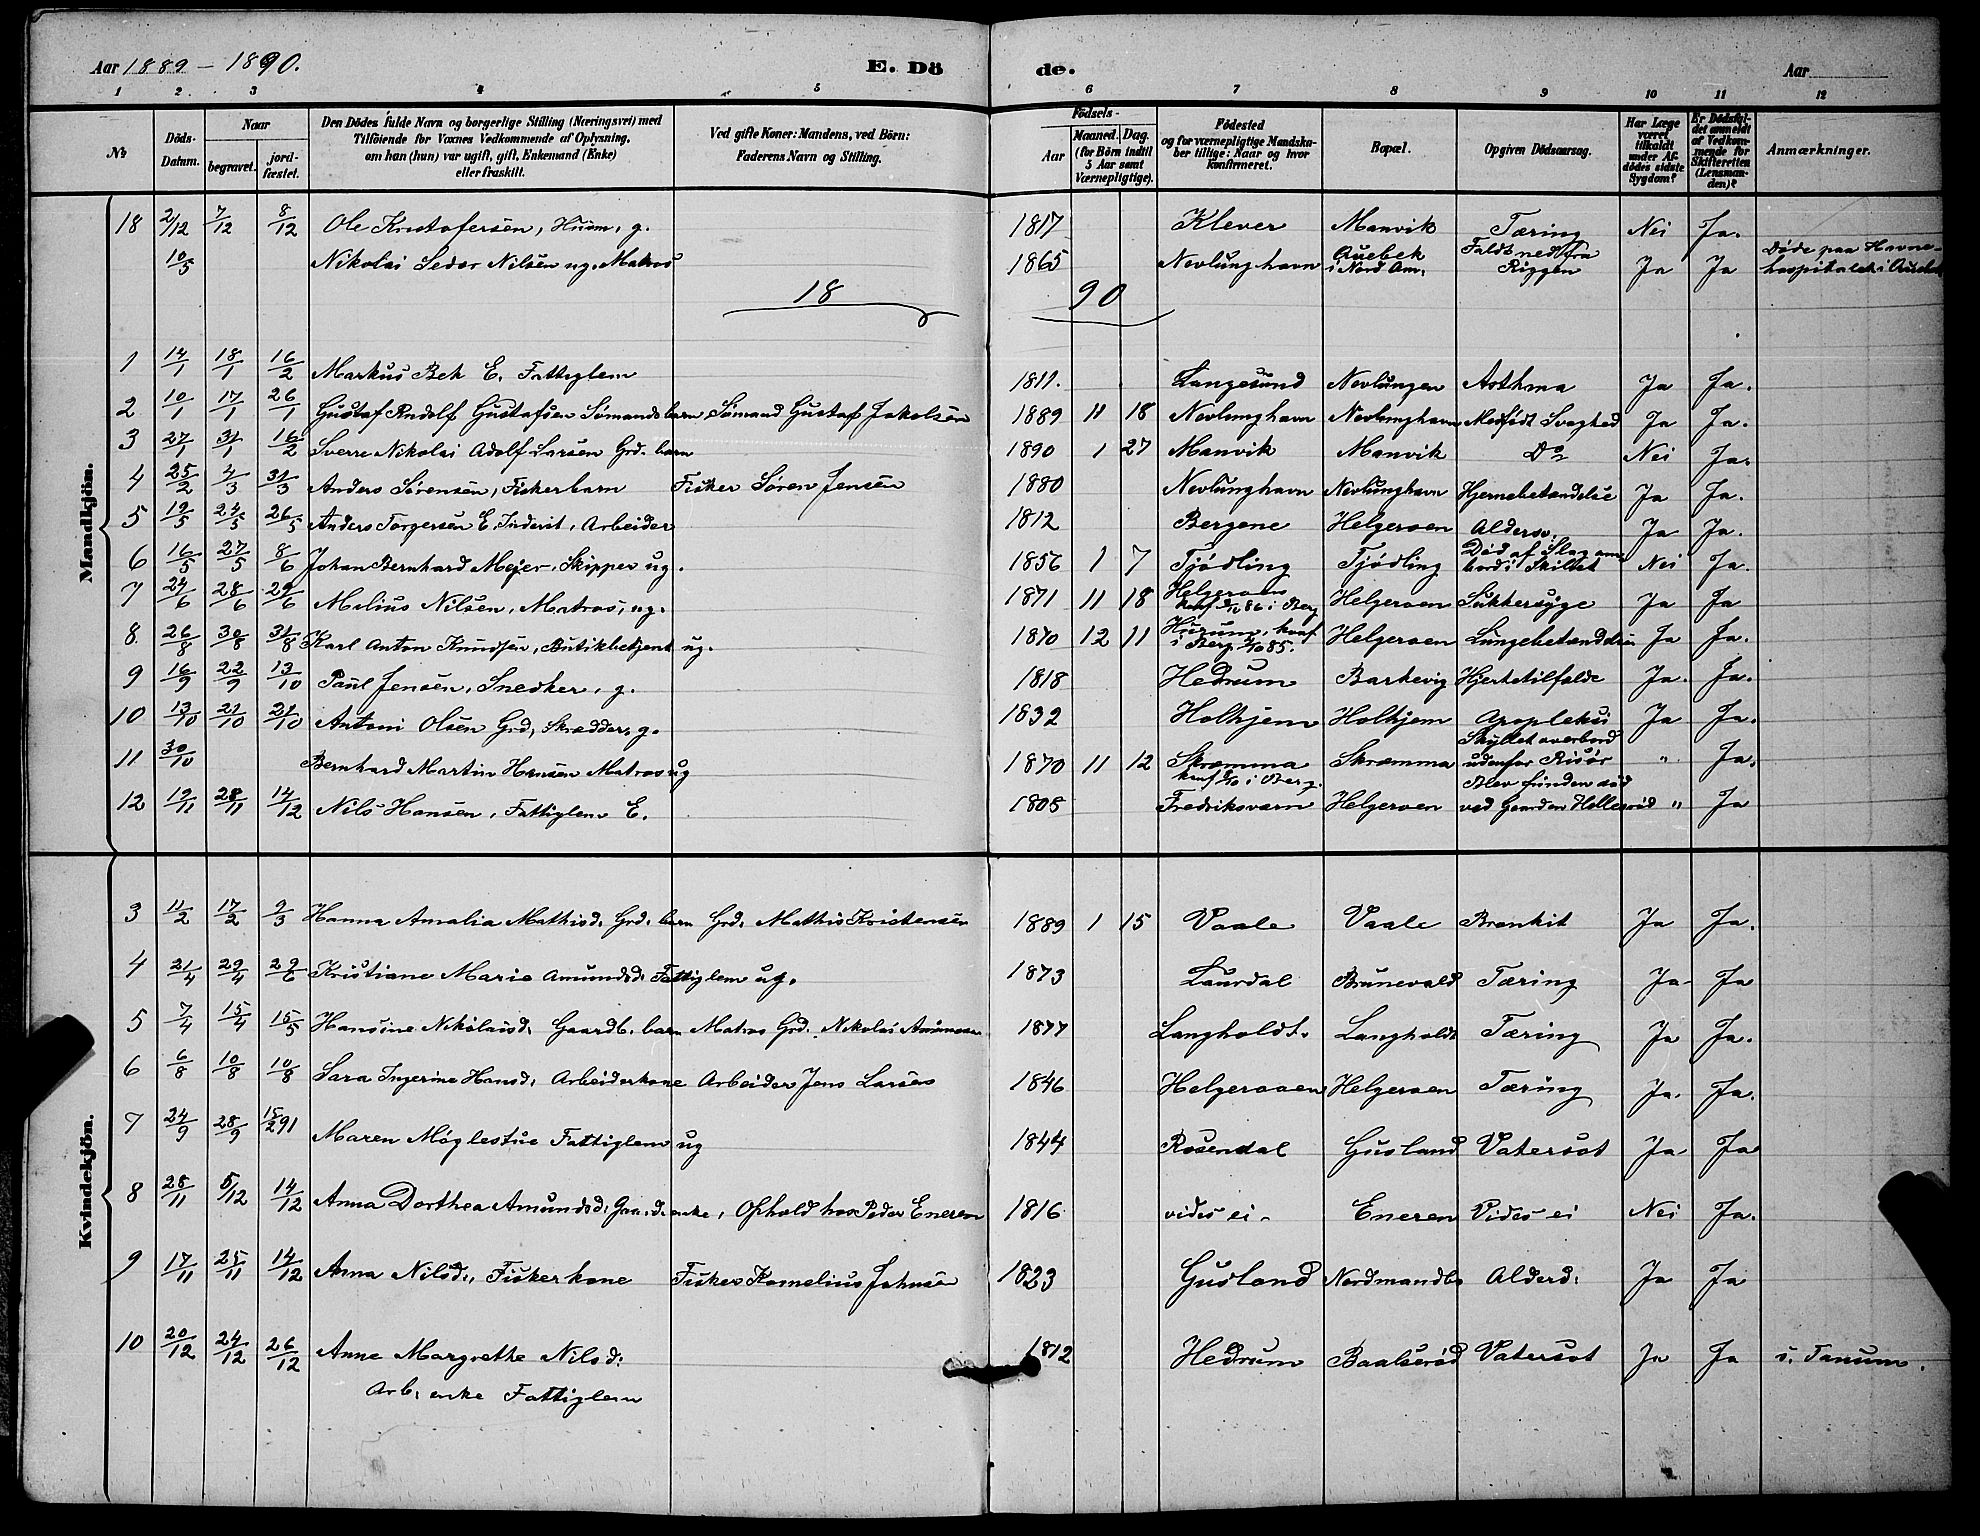 Aar 1889 – 1890. E. Dö de. Aar
1 2 3 4 5 6 7 8 9 10 11 12
№ Döds-Datum. Naar begravet. jord-fæstet. Den Dödes fulde Navn og borgerlige Stilling (Næringsvei) med Tilföiende for Voxnes Vedkommende af Oplysning, om han (hun) var ugift, gift, Enkemand (Enke) eller fraskilt. Ved gifte Koner: Mandens, ved Börn: Faderens Navn og Stilling. Födsels- Aar Maaned. Dag. (for Börn indtil 5 Aar samt Værnepligtige). Födested og for værnepligtige Mandskaber tillige: Naar og hvor konfirmeret. Bopæl. Opgiven Dödsaarsag. Har Læge været tilkaldt under Afdödes sidste Sygdom? Er Dödsfaldet anmeldt af Vedkommende for Skifteretten (Lensmanden)? Anmærkninger.
Mandkjön.
18 2/12 7/12 8/12 Ole Kristofersen, Husm, g. 1817 Klever Manvik Tæring Nei Ja.
10/5 Nikolai Sedor Nilsen ug. Matros 1865 Nevlunghavn Quebek i Nord Am. Faldt ned fra Riggen Ja Ja Døde paa Havne-hospitalet i Quebek
18 90
1 14/1 18/1 16/2 Markus Bek E. Fattiglem 1811. Langesund Nevlungen Asthma Ja Ja.
2 10/1 17/1 26/1 Gustaf Rudolf Gustafsen Sømands barn, Sømand Gustaf Jakobsen 1889 11 18 Nevlunghavn Nevlunghavn Medfødt Svaghed Ja Ja.
3 27/1 31/1 16/2 Sverre Nikolai Adolf Larsen Grd. barn 1890 1 27 Manvik Manvik Do Nei Ja.
4 25/2 4/3 31/3 Anders Sørensen, Fiskerbarn Fisker Søren Jensen 1880 Nevlunghavn Nevlunghavn Hjernebetændelse Ja Ja.
5 19/5 24/5 26/5 Anders Torgersen E. Inderst, Arbeider 1812 Bergene Helgeroen Aldersv. Ja Ja.
6 16/5 27/5 8/6 Johan Bernhard Mejer, Skipper ug. 1856 1 7 Tjødling Tjødling Død af Slag om-bord i Skibet Nei Ja.
7 24/6 28/6 29/6 Melius Nilsen, Matros, ug. 1871 11 18 Helgeroen konf. 86 i Berg Helgeroen Sukkersyge Ja Ja
8. 26/8 30/8 31/8 Karl Anton Knudsen, Butikbetjent ug. 1870 12 11 Hurum, konf i Berg 85. Helgeroen Lungebetændelse Ja Ja.
9 16/9 22/9 13/10 Paul Jensen, Snedker, g. 1818 Hedrum Barkevig Hjertetilfælde Ja. Ja.
10 13/10 21/10 21/10 Antoni Olsen Grd, Skrædder, g. 1832 Holtjem Holtjem Apopleksi Ja Ja.
11 30/10 Bernhard Martin Hansen Matros ug 1870 11 12 Skræmma konf. i Berg. Skræmma Skyllet overbord udenfor Risør " Ja.
12 12/11 28/11 14/12 Nils Hansen, Fattiglem E. 1808 Fredriksværn Helgeroen Blev funden død ved Gaarden Hellesrød " Ja
Kvindekjön.
3 11/2 17/2 9/3 Hanna Amalia Mathisd. Grd. barn Grd. Mathis Kristensen 1889 1 15 Vaale Vaale Bronkit Ja Ja.
4 21/4 29/4 29/6 Kristiane Marie Amundsd. Fattiglem ug. 1873 Laurdal Brunevald Tæring Ja Ja
5 7/4 15/4 15/5 Hansine Nikolaisd. Gaardb. barn Matros Grd. Nikolai 1877 Langholdt. Langholdt Tæring Ja Ja.
6 6/8 10/8 10/8 Sara Ingerine Hansd. Arbeiderkone Arbeider Jens Larsen 1846 Helgeroen Helgeroen Tæring Ja. Ja.
7 24/9 28/9 15/2 91 Maren Møglestue Fattiglem ug 1844 Rosendal Gusland Vatersot Ja Ja
8 28/11 5/12 14/12 Anna Dorthea Amundsd. Gaard. enke, Ophold hos Peder Eneren 1816 vides ei. Eneren Vides ei Nei Ja.
9 17/11 25/11 14/12 Anna Nilsd., Fiskerkone Fisker Kornelius Johnsen 1823 Gusland Nordmandbo Alderd. Ja Ja
10 20/12 24/12 26/12 Anne Margrethe Nilsd. 1812 Hedrum Baalsrød Vatersot Ja Ja i. Tanum.
Arb. enke Fattiglem